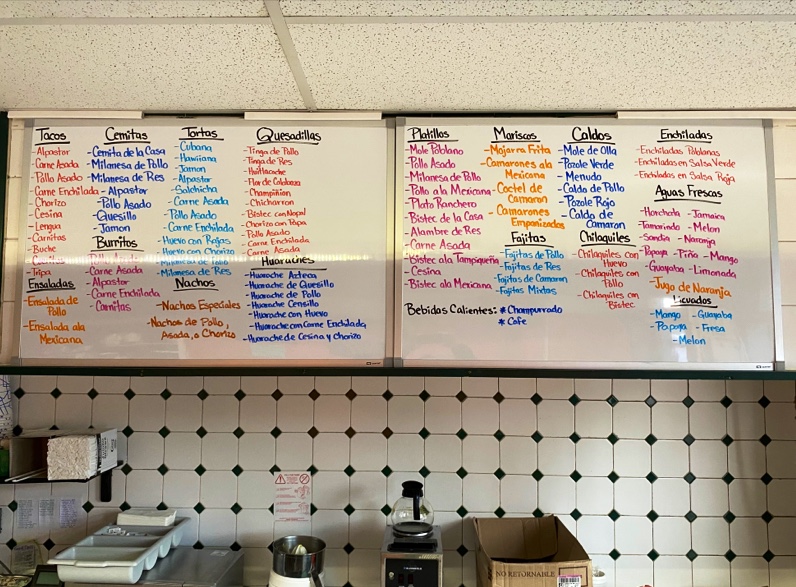 Tacos
-Alpastor
-Carne Asada
-Pollo Asado
-Carne Enchilada
-Chorizo
-Cesina
-Lengua
-Carnitas
-Buche
-Tripa
Ensaladas
-Ensalada de
Pollo
-Ensalada ala
Mexicana
Cemitas
-Cemita de la Casa
-Milanesa de Pollo
-Milanesa de Res
-Alpastor
-Pollo Asado
-Quesillo
-Jamon
Burritos
-Carne Asada
-Alpastor
-Carne Enchilada
-Carnitas
Tortas
-Cubana
-Hawiiana
-Jamon
-Alpastor
-Salchicha
-Carne Asada
-Pollo Asado
-Carne Enchilada
-Huevo con Rajas
-Huevo con Chorizo
-Milanesa de Pollo
-Milanesa de Res
Nachos
-Nachos Especiales
-Nachos de Pollo,
Asada, o Chorizo
Quesadillas
-Tinga de Pollo
-Tinga de Res
-Huitlacoche
-Flor de Calabaza
-Champiñion
-Chicharron
-Bistec con Nopal
-Chorizo con Papa
-Pollo Asado
-Carne Enchilada
-Carne Asada
Huaraches
-Huarache Azteca
-Huarache de Quesillo
-Huarache de Pollo
-Huarache Sencillo
-Huarache con Huevo
-Huarache con Carne Enchilada
-Huarache de Cesina y Chorizo
Platillos
-Mole Poblano
-Pollo Asado
-Milanesa de Pollo
-Pollo a la Mexicana
-Plato Ranchero
-Bistec de la Casa
-Alambre de Res
-Carne Asada
-Bistec ala Tampiqueña
-Cesina
-Bistec ala Mexicana
Bebidas Calientes: * Champurrado
* Cafe
Mariscos
-Mojarra Frita
-Camarones ala
Mexicana
-Coctel de
Camaron
-Camarones
Empanizados
Fajitas
-Fajitas de Pollo
-Fajitas de Res
-Fajitas de Camaron
-Fajitas Mixtas
Caldos
-Mole de Olla
-Pozole Verde
-Menudo
-Caldo de Pollo
-Pozole Rojo
-Caldo de
Camaron
Chilaquiles
-Chilaquiles con
Huevo
-Chilaquiles con
Pollo
-Chilaquiles con
Bistec
Enchiladas
-Enchiladas Poblanas
-Enchiladas en Salsa Verde
-Enchiladas en Salsa Roja
Aguas Frescas
-Horchata -Jamaica
-Tamarindo -Melon
-Sandia -Naranja
-Papaya -Piña -Mango
-Guayaba -Limonada
-Jugo de Naranja
Licuados
-Mango -Guayaba
-Papaya -Fresa
-Melon
NO RETORNABLE